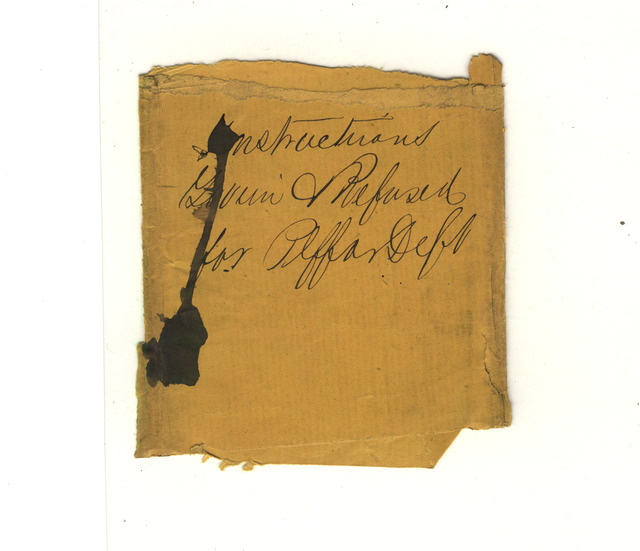 Instructions
Given & Refused
for Plff or Deft